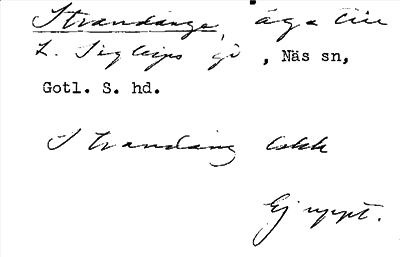 Strandänge, äga till
L. Sigleips gd, Näs sn,
Gotl. S. hd.
Strandäng lokk
Ej uppt.